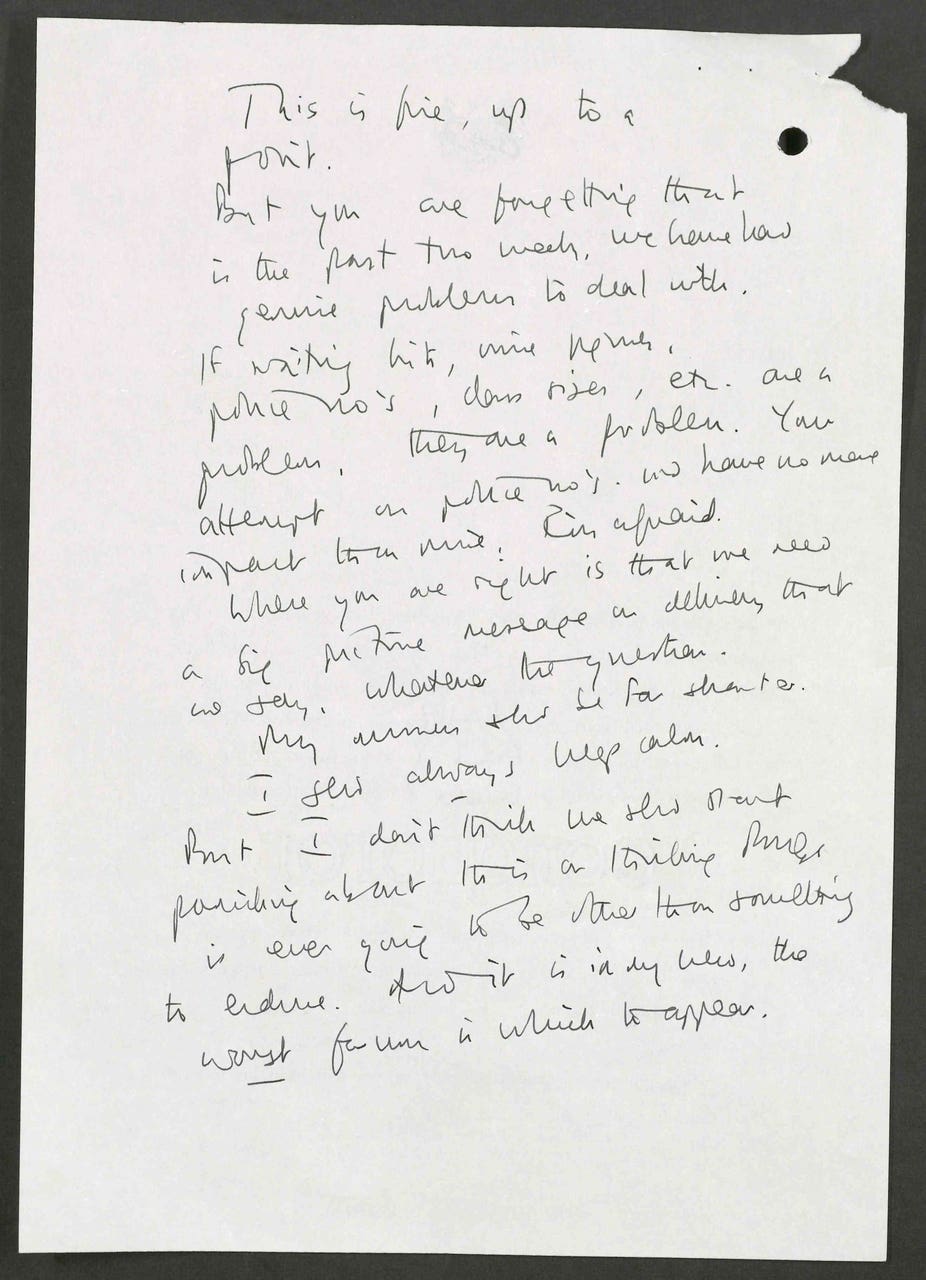 This is fine, up to a
point.
But you are forgetting that
in the past two weeks, we have had
genuine problems to deal with.
If waiting lists, crime figures,
police no's, class sizes, etc. are a
problem, they are a problem. Your
attempt on police no's. wd have no more
impact than mine, I'm afraid.
Where you are right is that we need
a big picture message on delivery that
we say, whatever the question.
My answers shd be far shorter.
I shd always keep calm.
But I don't think we shd start
panicking about this or thinking PMQs
is ever going to be other than something
to endure. And it is in my view, the
worst forum in which to appear.